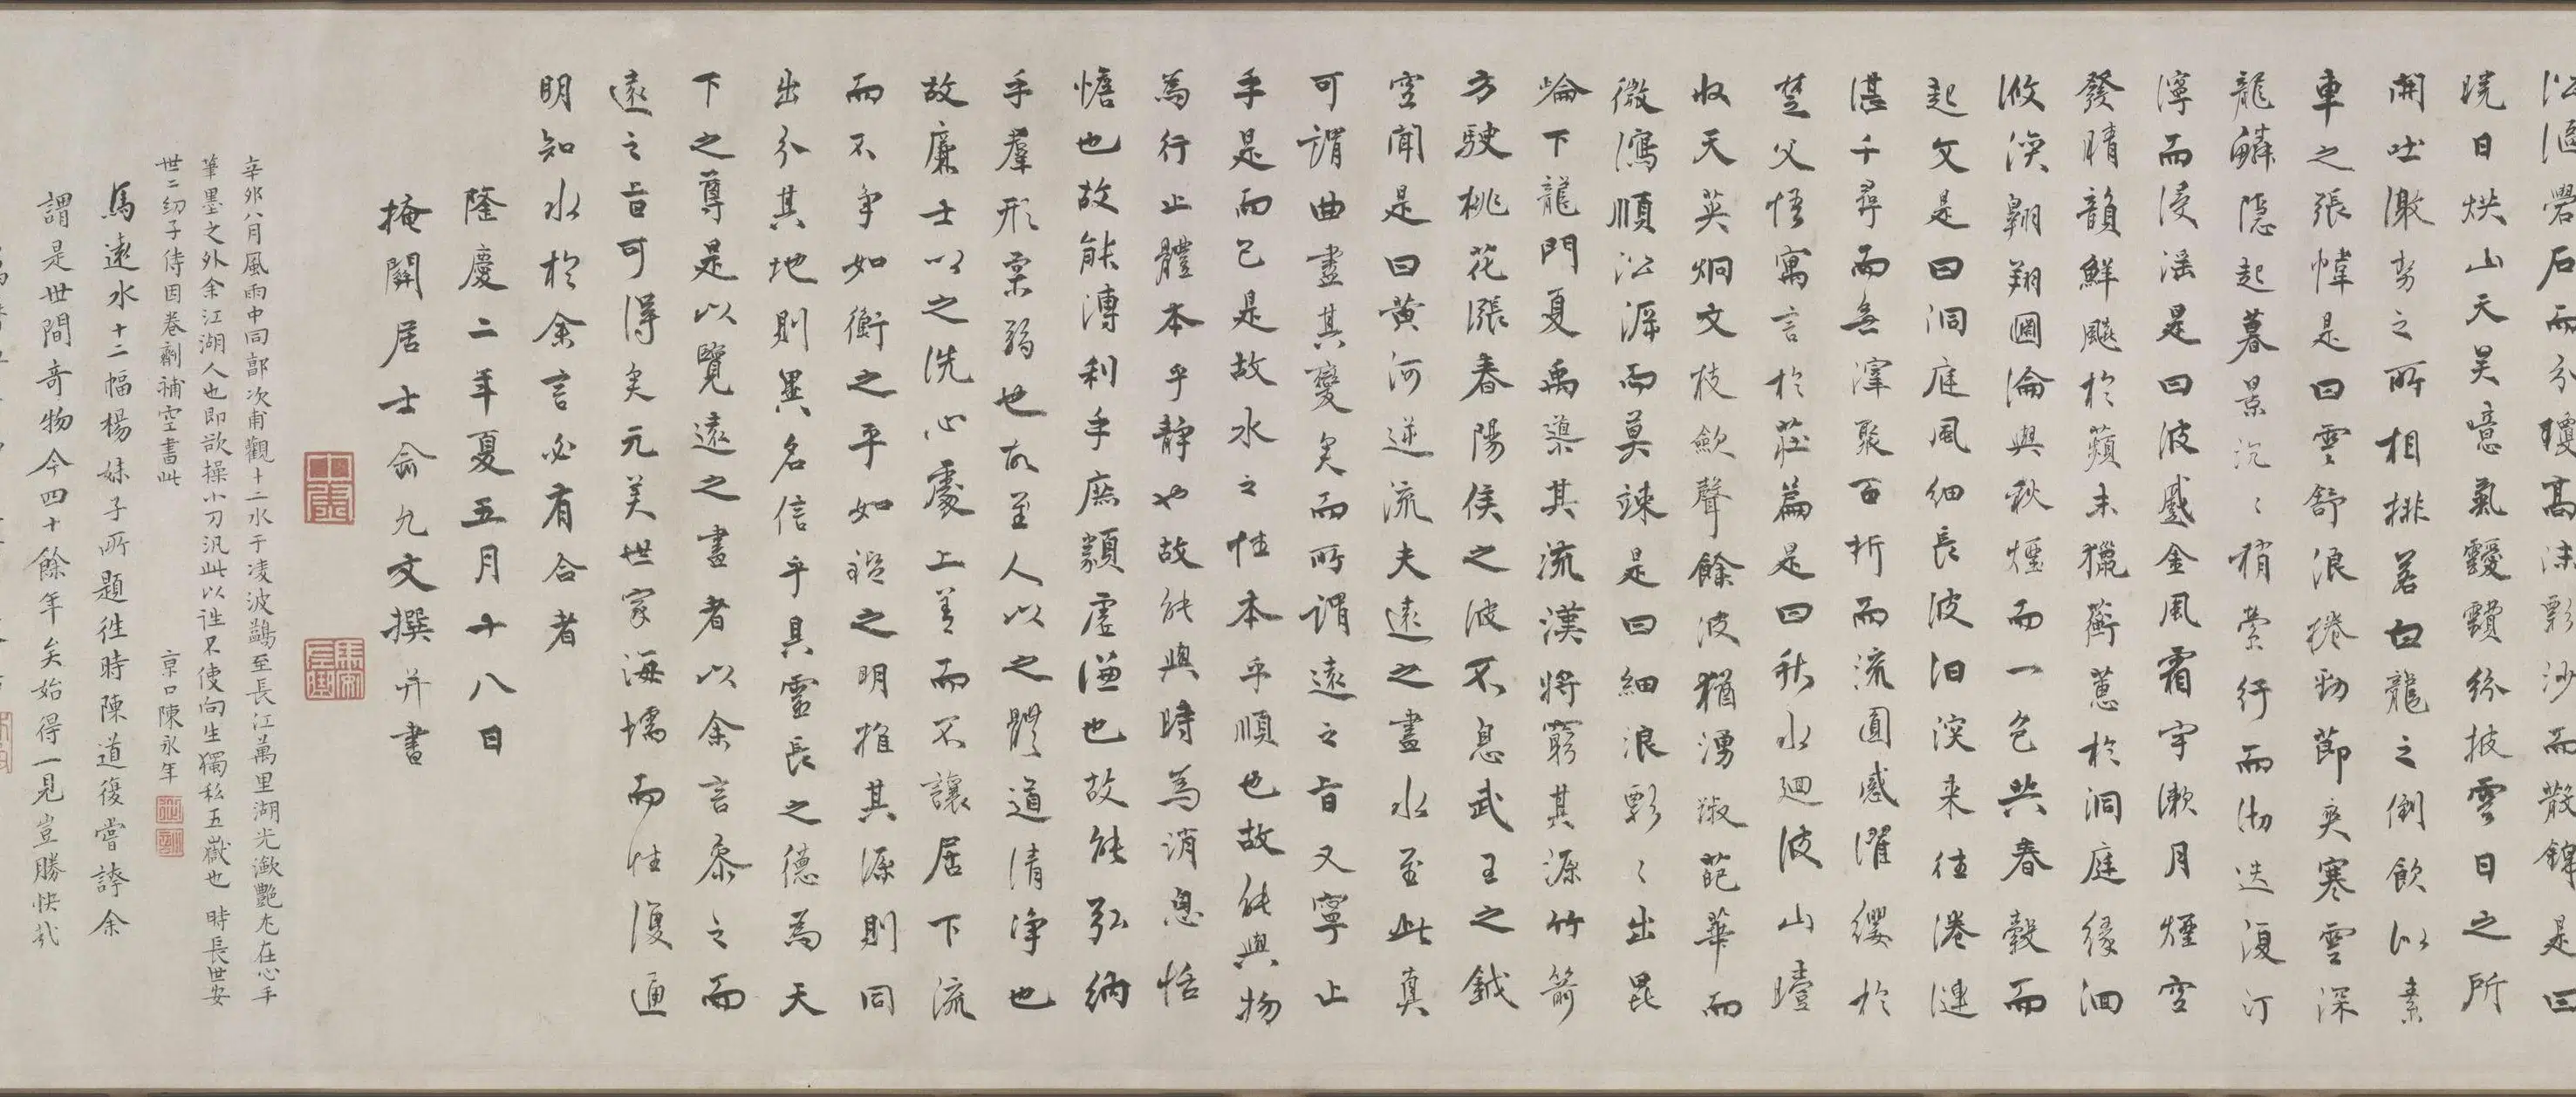 沿洄礐石而分瓊高沫彩沙而散錦是曰
曉日烘山天吴噫氣靉靆紛披雲日之所
開吐潄勢之所相排若白龍之倒飲以素
車之張幃是曰雲舒浪捲勁節爽寒雲深
龍鱗隱起暮景沉〻稍縈行而沕迭復汀
濘而浸滛是曰波蹙金風霜宇漱月煙空
發晴韻鮮飈於蘋末獵蘅蕙於洞庭緣洄
攸渙翱翔圖淪與秋煙而一色共春縠而
起文是曰洞庭風細長波汩淣来往淃漣
湛千尋而無滓聚百折而流圓感濯纓於
楚父悟寓言於莊篇是曰秋水廻波山曀
收天英炯文枝歛聲餘波猶湧淑葩華而
微瀉順沿漘而莫竦是曰細浪彩〻出昆
崘下龍門夏禹導其流漢將窮其源竹箭
方駛桃花漲春陽侯之波不息武王之鉞
空聞是曰黄河逆流夫遠之畫水至此真
可謂曲盡其變矣而所謂遠之旨又寧止
乎是而已是故水之性本乎順也故能與物
為行止體本乎静也故能與時為消息恬
憺也故能漙利乎庶類虚謙也故能弘納
乎羣形柔弱也故至人以之體道清净也
故廉士以之洗心處上善而不讓居下流
而不争如衡之平如鑑之明推其源則同
出分其地則異名信乎具靈長之德為天
下之尊是以覽遠之畫者以余言叅之而
遠之旨可得矣元美世家海壖而性復通
明知水於余言必有合者
隆慶二年夏五月十八日
掩關居士俞允文撰并書
辛卯八月風雨中同鄣次甫觀十二水于凌波鷁至長江萬里湖光瀲艷尤在心手
筆墨之外余江湖人也即欲操小刀汎此以往不使向生獨私五嶽也時長世安
世二幼子侍因卷劑補空書此
京口陳永年
馬遠水十二幅楊妹子所題徃時陳道復嘗誇余
謂是世間竒物今四十餘年矣始得一見豈勝快哉